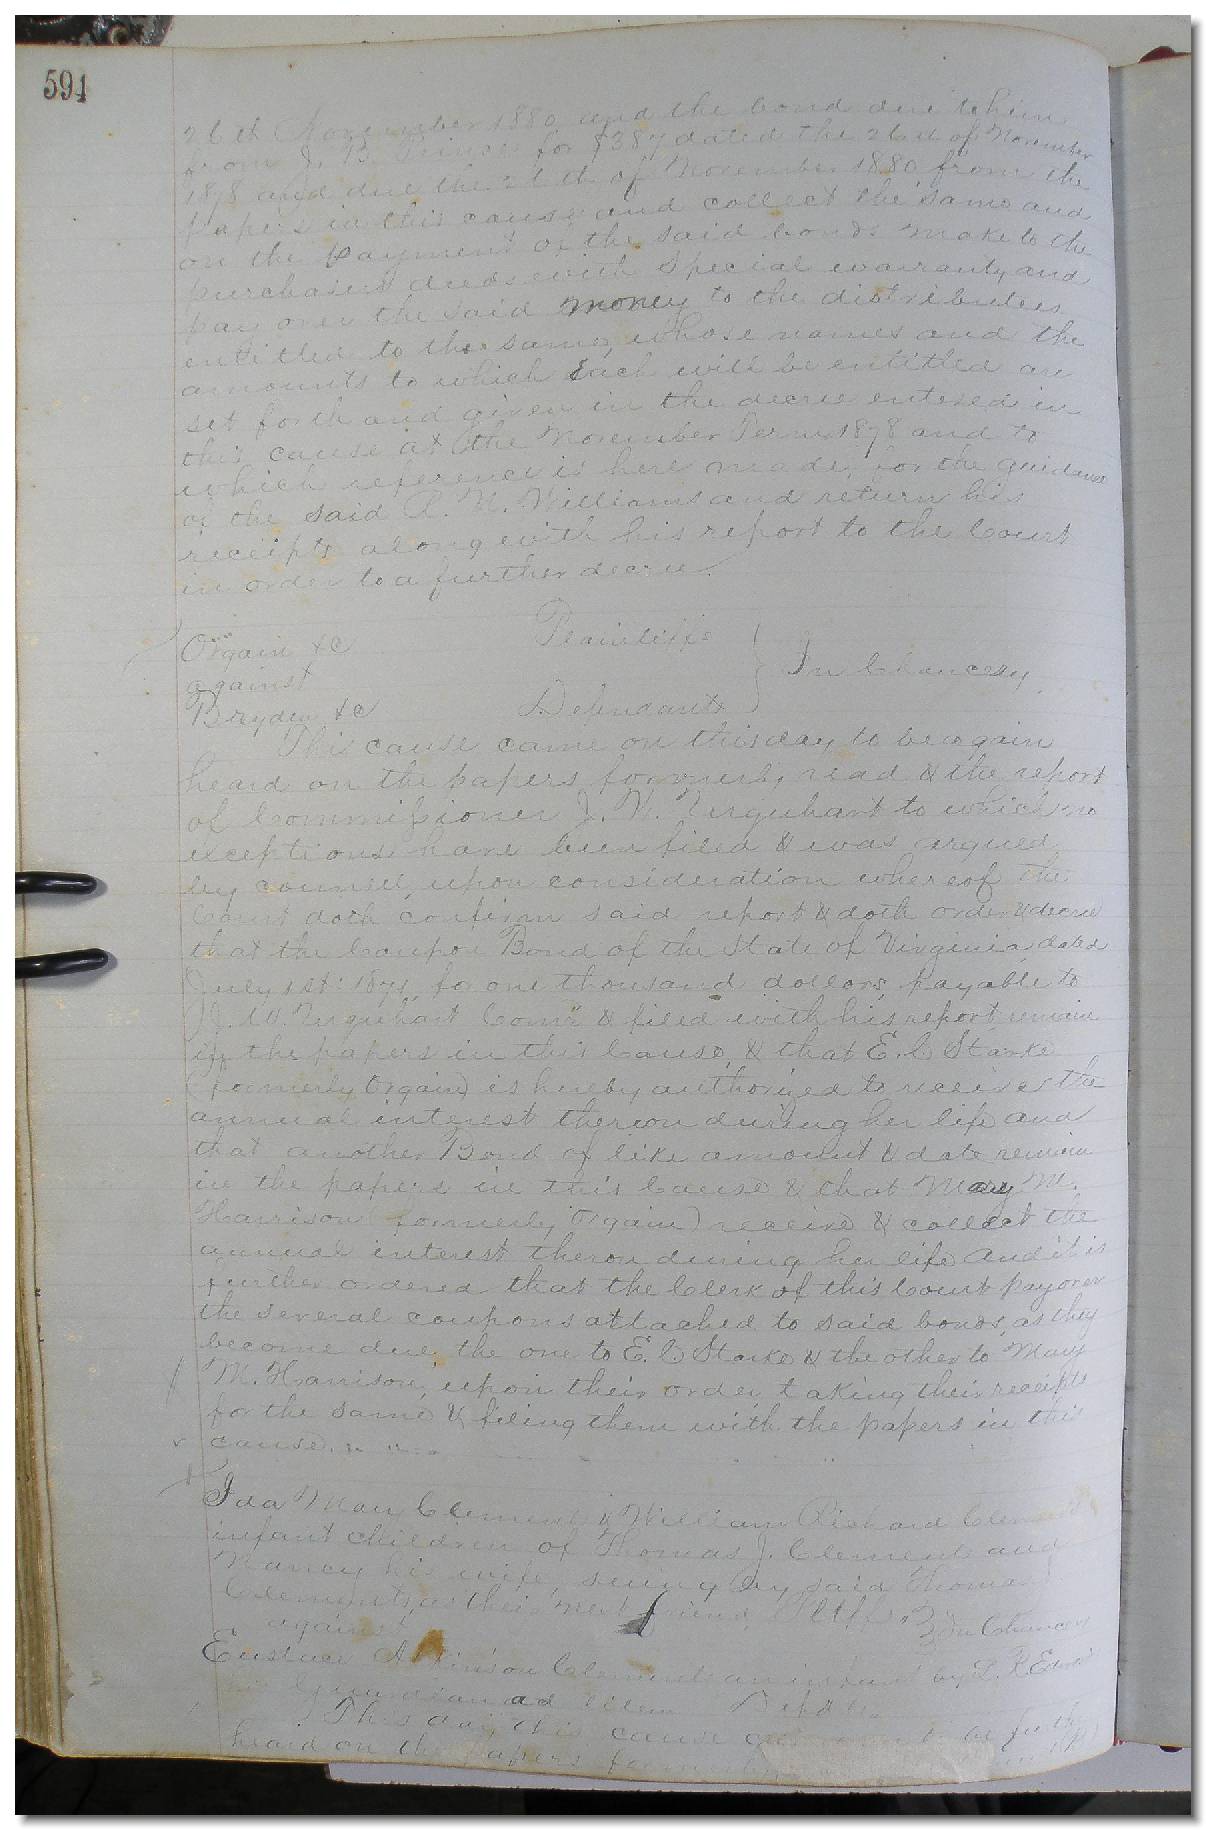 594
26th November 1880 and the bond due to him
from J. B. Prince for $387 dated the 26th of November
1878 and due the 26th of November 1880 from the
papers in this cause and collect the same and
on the payment of the said bonds make to the
purchasers deeds with special warranty and
pay over the said money to the distributees
entitled to the same, whose names and the
amounts to which Each will be entitled are
set forth and given in the decree entered in
this cause at the November Term 1878 and to
which reference is here made, for the guidance
of the said R. H. Williams and return his
receipts along with his report to the Court
in order to a further decree.
Orgain &c Plaintiffs
against In Chancery
Bryden &c Defendants
This cause came on this day to be again
heard on the papers formerly read & the report
of Commissioner J. W. Urquhart to which no
exceptions have been filed & was argued
by counsel, upon consideration whereof the
Court doth confirm said report & doth order & decree
that the Coupon Bond of the State of Virginia, dated
July 1st 1871, for one thousand dollars, payable to
J. W Urquhart Comr & filed with his report remain
in the papers in this Cause, & that E. C Starke
(formerly Orgain) is hereby authorized to receive the
annual interest thereon during her life and
that another Bond of like amount & date remain
in the papers in this Cause & that Mary M.
Harrison (formerly Orgain) receive & collect the
annual interest theron during her life and it is
further ordered that the Clerk of this Court pay over
the several coupons attached to said bonds, as they
become due, the one to E. C Starke & the other to Mary
M. Harrison, upon their order, taking their receipts
for the same & filing them with the papers in this
cause.
Ida May Clements & William Richard Clements,
infant children of Thomas J. Clements and
Nancy his wife, suing by said Thomas J.
Clements, as their next friend, Pltffs
against In Chancery
Eustace Atkinson Clements an infant by L. R. Edwards
his Guardian ad litem Defdts.
This day this cause came on to be further
heard on the papers formerly